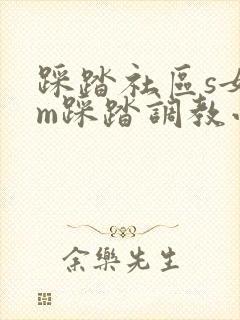 踩踏社區s女
m踩踏調教
余樂先生